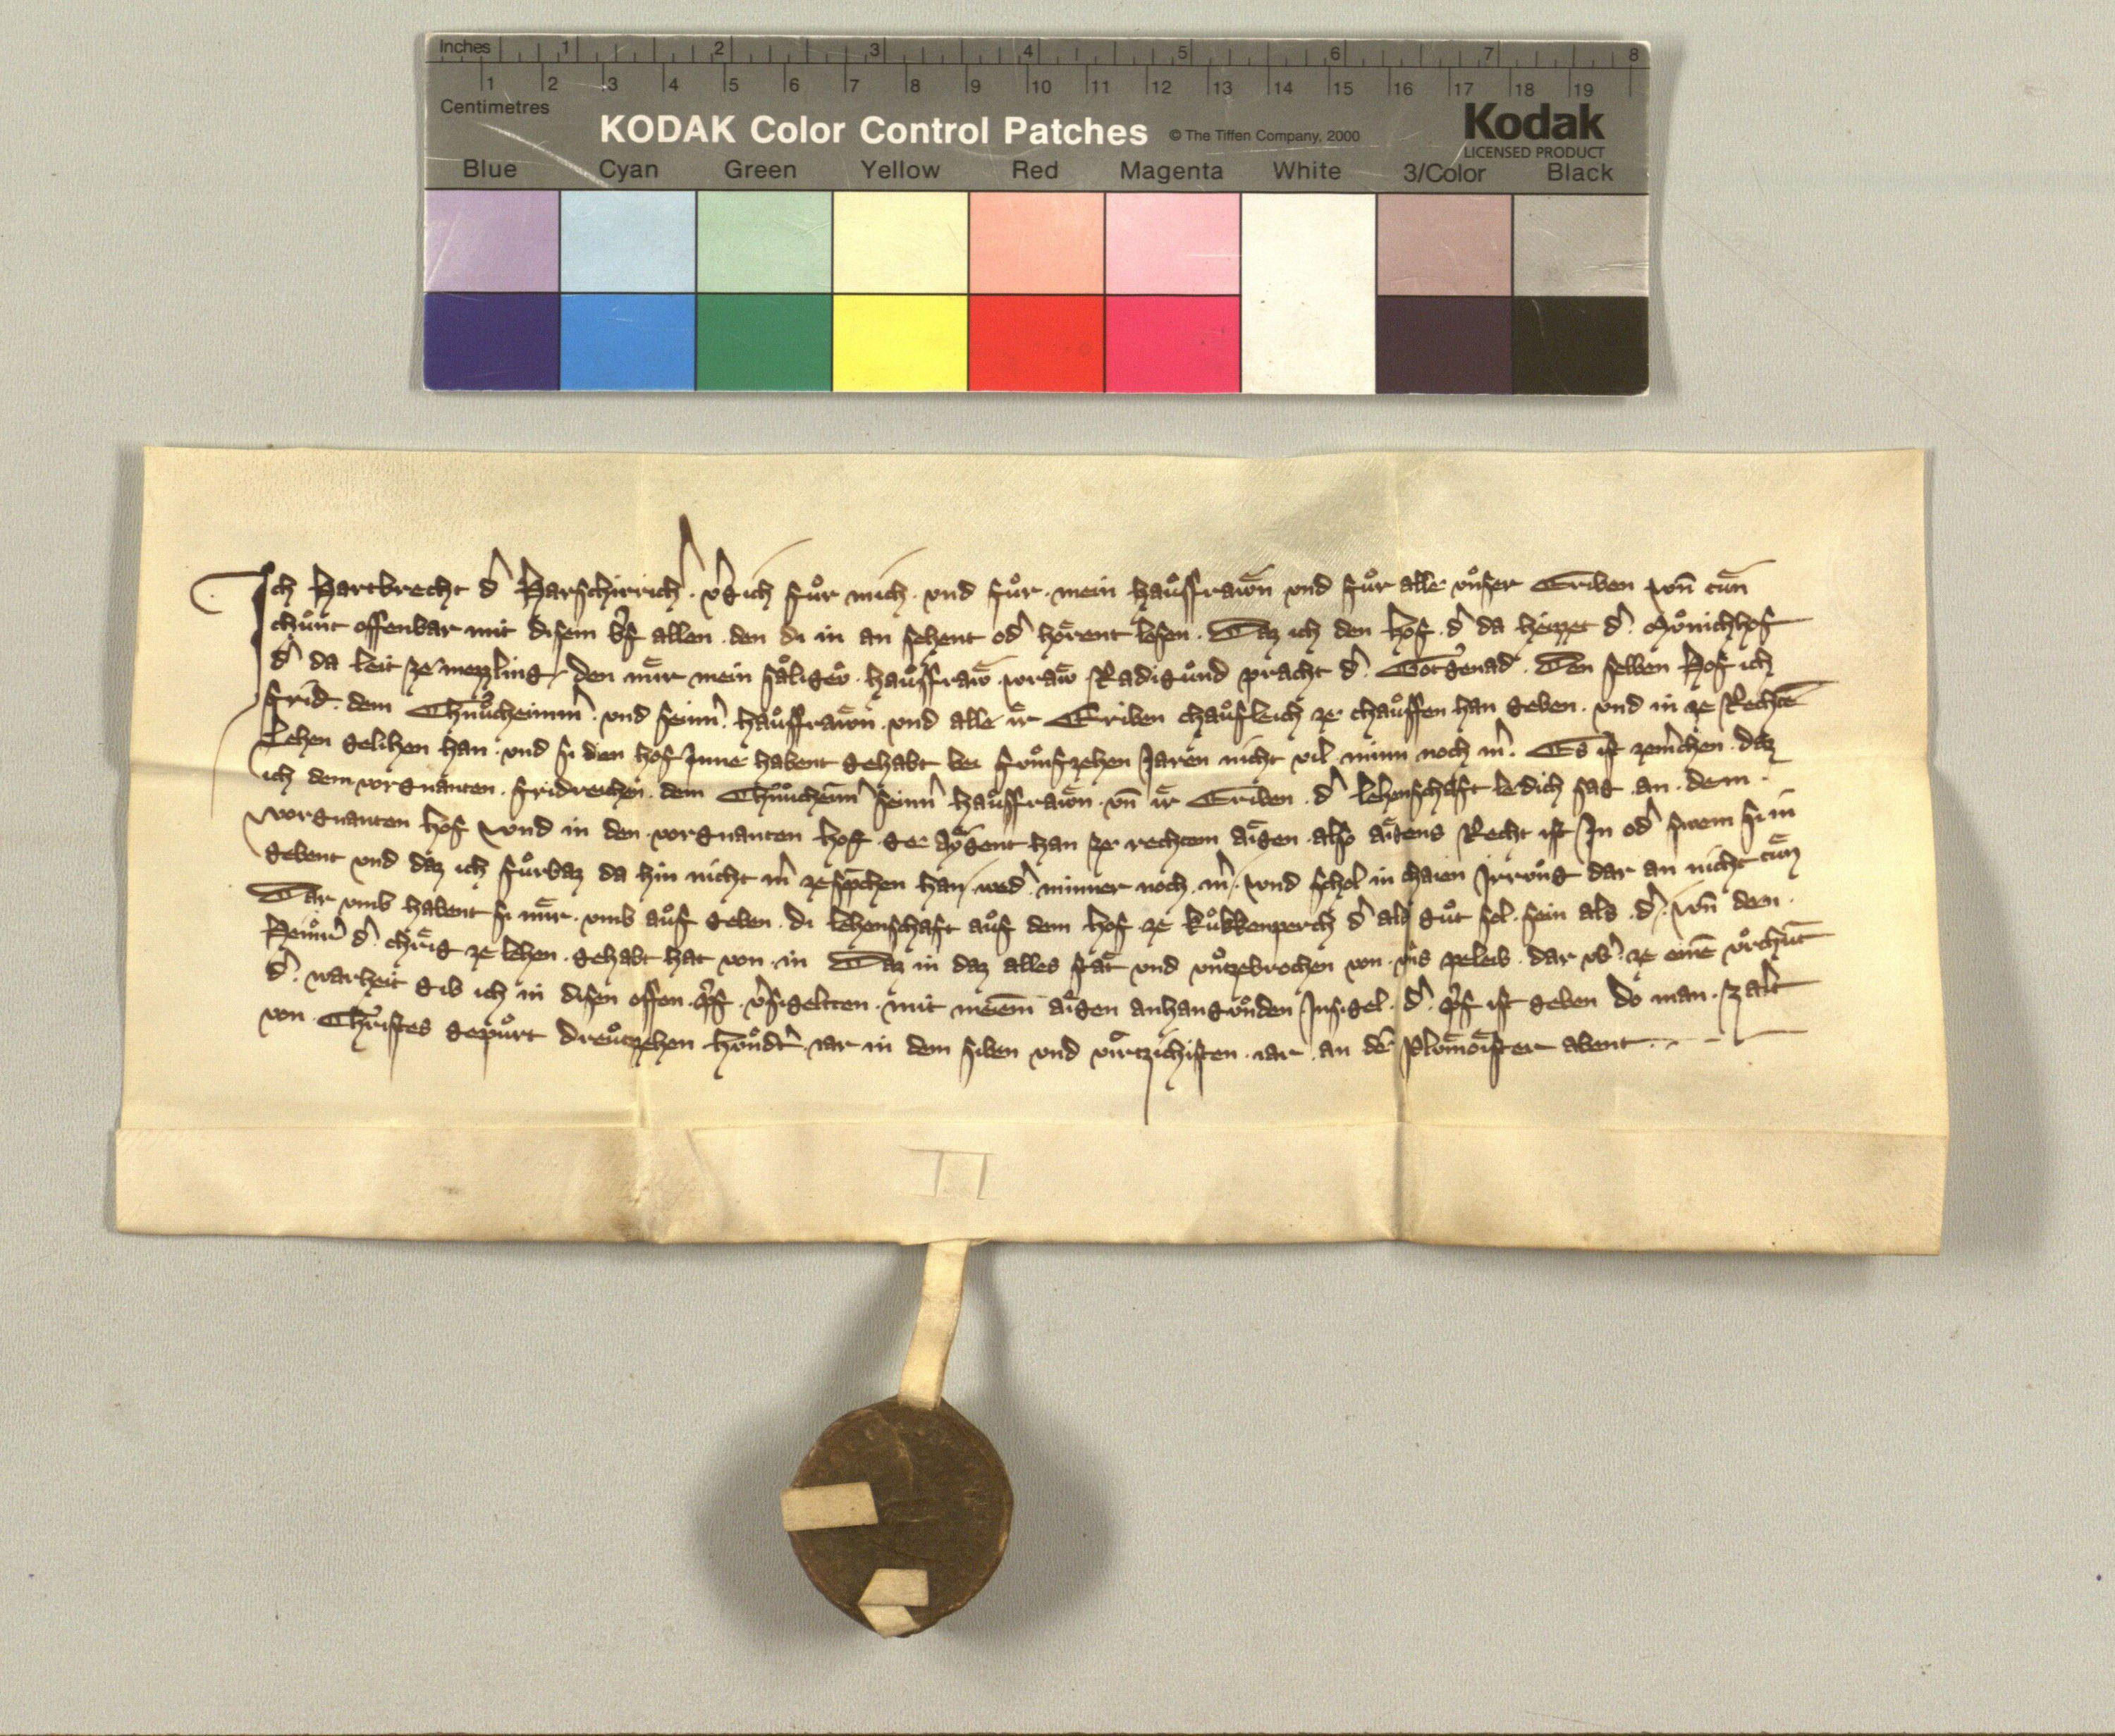 Inches 1 2 3 4 5 6 7 8
1 2 3 4 5 6 7 8 9 10 11 12 13 14 15 16 17 18 19
Centimetres
KODAK Color Control Patches © The Tiffen Company, 2000 Kodak
LICENSED PRODUCT
Blue Cyan Green Yellow Red Magenta White 3/Color Black
Ich Hartbrecht d' Harschirrich v'gich fuͦr mich und fuͦr mein hauͦsfrawn und fuͦr alle uͦnser Eriben vn̄ tuͤn
chuͦnt offenbar mit disem b'f allen den di in an sehent od' hoͤrent lesen. Daz ich den hof d' da heizzet d' Muͦnichhof
d' da leit ze mezzling den mir mein saͤligeͦ hauͦsfraw vraw Radiguͦnd pracht d' Got genad. Den selben Hof ich
frid. dem Chnuͦcheimm' und seinn' hauͦsfrawn und alle ir Eriben chauͦfleich ze chauͦffen han geben und in ze Rechtē
Lehen gelihen han und si den hof Inne habent gehabt bei fuͦmfzehen Jaren nicht vil minn noch m'. Es ist zem'chen daz
ich dem vorgnanten fridreichen dem Chnuͦcheim' seinn' hauͦsfrawn vn̄ ir Eriben d' lehenschaft ledich sag an dem
vorgnanten hof vnd in den vorgnanten hoff ge aygent han ze rechtem aigen also aigens Recht ist In od' swem si in
gebent und daz ich fuͦrbaz da hin nicht m' ze sp'chen han wed' minner noch m' vnd schol in chaien Irruͦng dar an nicht tuͤn
Dar umb habent si mir umb auͦf geben di lehenschaft auͦf dem hof ze kuͦkkenperch d' als guͦt sol sein als d' vn̄ den
d' chrig ze lehen gehabt hat von in Daz in daz alles staͤt und uͦnzebrochen von uns peleib dar ub' ze einē uͦrchuͤnt
d' warheit gib ich in disen offen p'f v'sigeltten mit meiem aigen anhanguͦnden Insigel d' p'f ist geben do man zalt
von Christes gepuͦrt dreuͦtzehen huͦndt' iar in dem siben und virtzichisten iar an de' Pluͦmoister abent